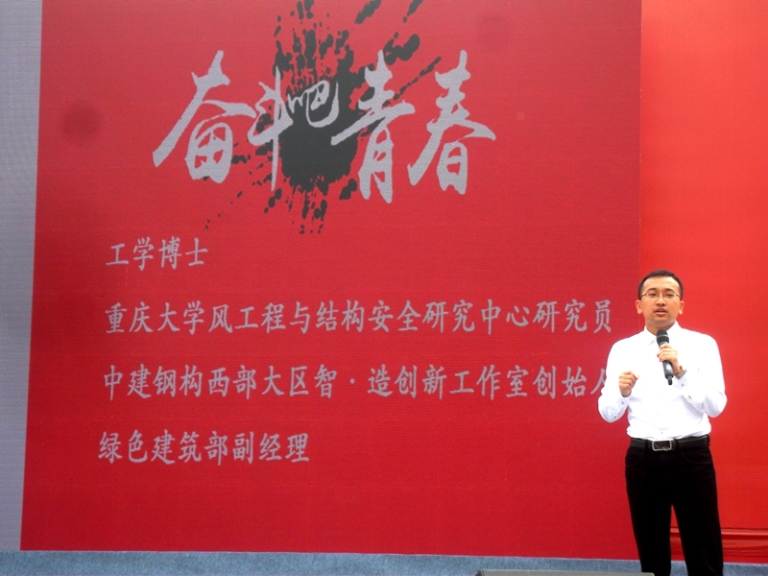 奋斗吧青春
工学博士
重庆大学风工程与结构安全研究中心研究员
中建钢构西部大区智·造创新工作室创始人
绿色建筑部副经理